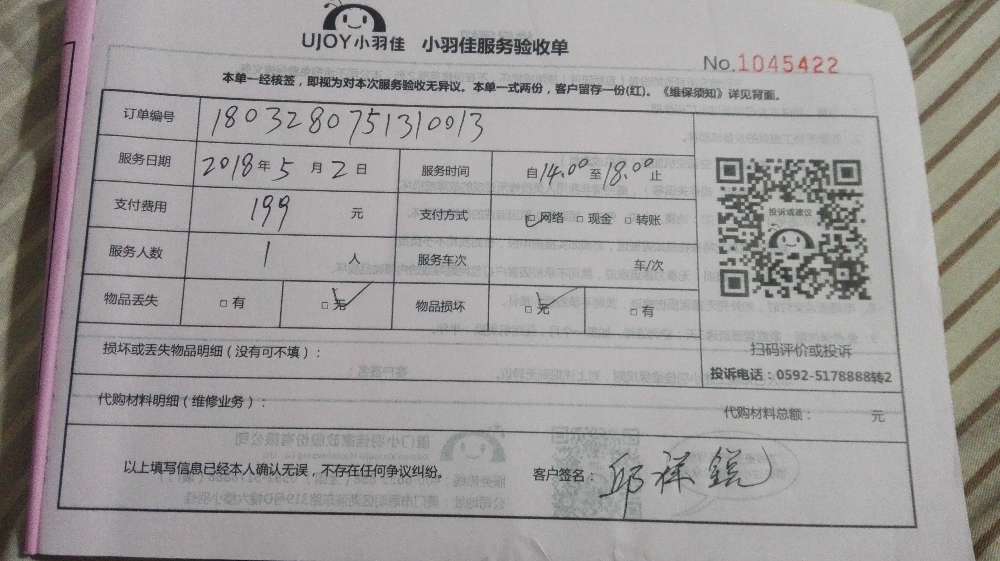 UJOY小羽佳 小羽佳服务验收单
No.1045422
本单一经核签，即视为对本次服务验收无异议。本单一式两份，客户留存一份(红)。《维保须知》详见背面。
订单编号 1803280751310013
服务日期 2018年5月2日 服务时间 自14.00至18.00止
支付费用 199 元 支付方式 □网络 □现金 □转账
投诉或建议
服务人数 1 人 服务车次 车/次
物品丢失 □有 □无 物品损坏 □无 □有
损坏或丢失物品明细（没有可不填）：
扫码评价或投诉
投诉电话：0592-5178888转2
代购材料明细（维修业务）： 代购材料总额： 元
以上填写信息已经本人确认无误，不存在任何争议纠纷。 客户签名：邱祥